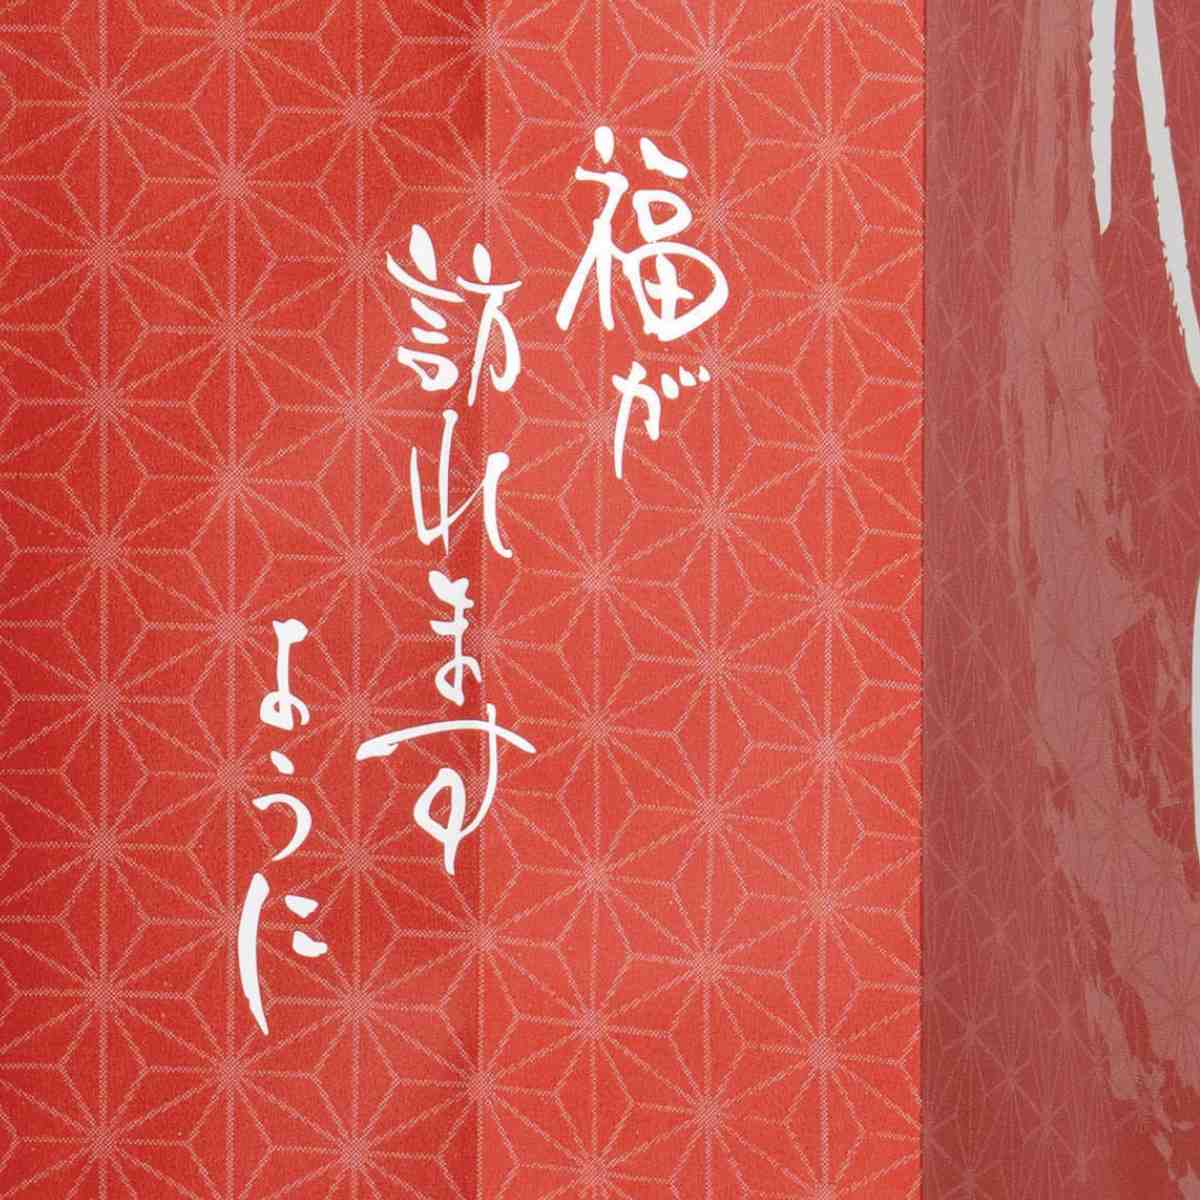 福が
訪れます
ように